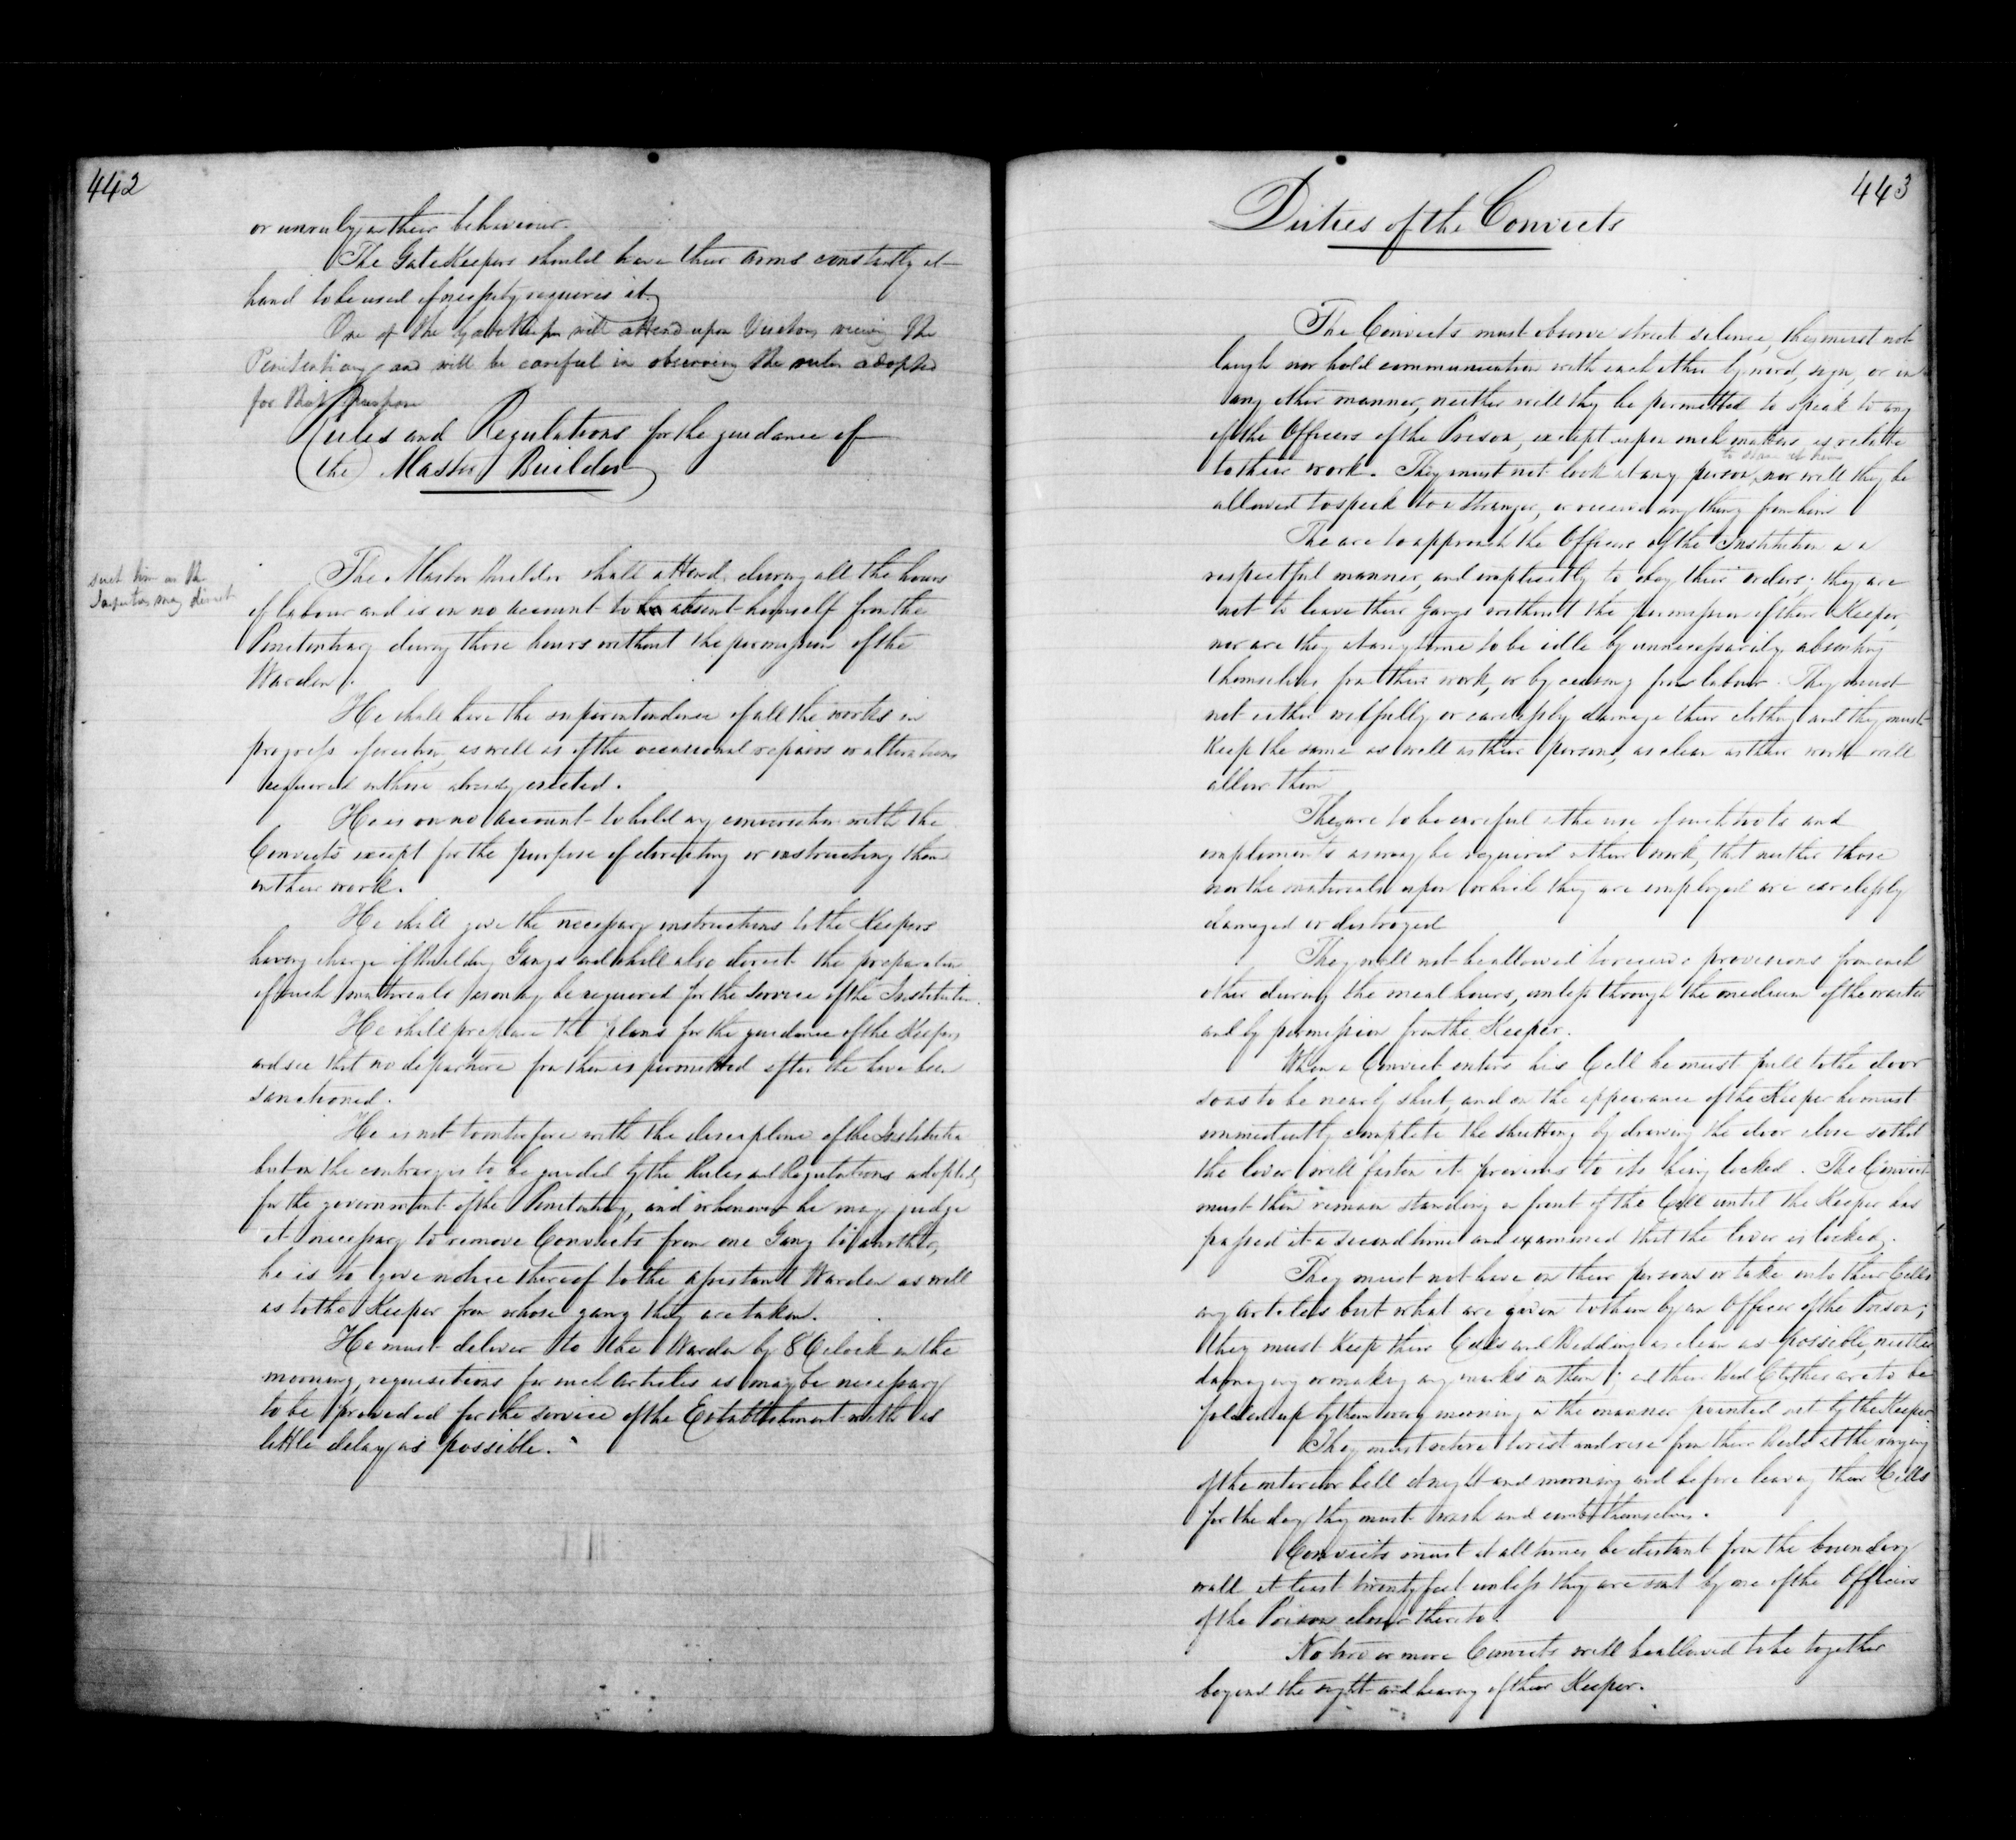 442
or unruly in their behaviour.
The Gate Keepers should have their arms constantly at
hand to be used if necessity requires it.
One of the Gate Keepers will attend upon Visitors viewing the
Penitentiary and will be careful in observing the rules adopted
for that purpose
Rules and Regulations for the guidance of
the Master Builder
such time as the
Inspectors may direct
The Master Builder shall attend during all the hours
of labour and is on no account to absent himself from the
Penitentiary during those hours without the permission of the
Warden.
He shall have the superintendence of all the works in
progress of erection, as well as of the occasional repairs or alterations
required in those already erected.
He is on no account to hold any conversation with the
Convicts except for the purpose of directing or instructing them
in their work.
He shall give the necessary instructions to the Keepers
having charge of Building Gangs and shall also direct the preparation
of such materials as may be required for the service of the Institution.
He shall prepare the plans for the guidance of the Keepers
and see that no departure from them is permitted after the have been
sanctioned.
He is not to interfere with the discipline of the Institution
but on the contrary is to be guided by the Rules and Regulations adopted
for the government of the Penitentiary, and whenever he may judge
it necessary to remove Convicts from one Gang to another,
he is to give notice thereof to the assistant Warden as well
as to the Keeper from whose gang they are taken.
He must deliver to the Warden by 8 O'clock in the
morning, requisitions for such articles as may be necessary
to be provided for the service of the Establishment with as
little delay as possible.
443
Duties of the Convicts
The Convicts must observe strict silence, they must not
laugh nor hold communication with each other by word, sign, or in
any other manner, neither will they be permitted to speak to any
of the Officers of the Prison, except upon such matters as relate
to their work. They must not look at any person, nor will they be
allowed to speak to a stranger, or receive any thing from him
The are to approach the Officers of the Institution in a
respectful manner, and implicitly to obey their orders; they are
not to leave their Gangs without the permission of their Keeper,
nor are they at any time to be idle by unnecessarily absenting
themselves from their work, or by ceasing from labour. They must
not either wilfully or carelessly damage their clothing and they must
keep the same as well as their persons, as clean as their work will
allow them
They are to be careful in the use of such tools and
implements as may be required in their work, that neither those
nor the materials upon which they are employed are carelessly
damaged or destroyed
They will not be allowed to receive provisions from each
other during the meal hours, unless through the medium of the waiter
and by permission from the Keeper.
When a Convict enters his Cell he must pull to the door
so as to be nearly shut, and on the appearance of the Keeper he must
immediately complete the shutting by drawing the door close so that
the lever will fasten it previous to its being locked. The Convict
must then remain standing in front of the Cell until the Keeper has
passed it a second time and examined that the lever is locked.
They must not have on their persons or take into their Cells
any articles but what are given to them by an Officer of the Prison;
they must keep their Cells and Bedding as clean as possible, neither
damaging or making any marks in them; and their Bed Clothes are to be
folded up by them every morning in the manner pointed out by the Keeper.
They must retire to rest and rise from their Beds at the ringing
of the interior bell at night and morning, and before leaving their Cells
for the day they must wash and comb themselves.
Convicts must at all times be distant from the boundary
wall at least twenty feet unless they are sent by one of the Officers
of the Prison closer thereto.
No two or more Convicts will be allowed to be together
beyond the sight and hearing of their Keeper.